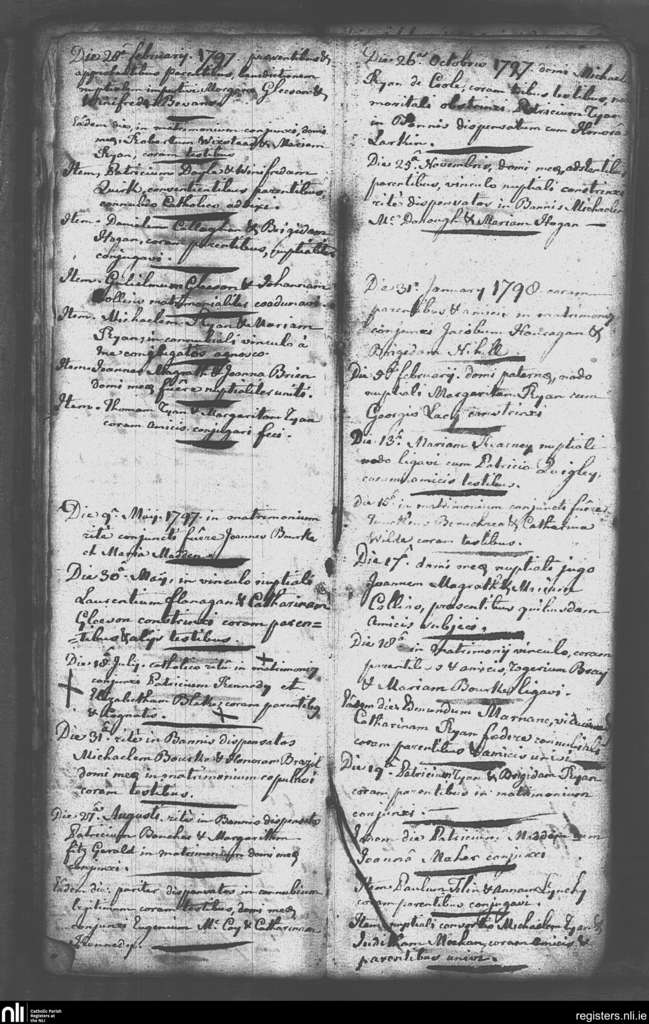 Die 28ª february. 1797 praesentibus &
approbantibus parentibus, benedictionem
nuptialem impertivi Morgano Gleeson &
Winifredae Bevans
Eadem die, in matrimonium conjunxi, domi
meae, Robertum & Mariam
Ryan, coram testibus
Item, Patricium Doyle & Winifredam
Quirk, convenientibus parentibus,
connubio Catholico adauxi.
Item. Danielem Callaghan & Brigidam
Hogan, coram parentibus, nuptialiter
conjugavi.
Item. Gulielmum Gleeson & Johannam
Collins matrimonialiter coadunavi
Item. Michaelem Ryan & Mariam
Ryan, in connubiali vinculo á
me congregatos agnosco.
Item. Joannes Magrath & Joanna Brien
domi meae, fuêre nuptialiter uniti.
Item. Thomam Ryan & Margaritam Ryan
coram amicis conjugari feci.
Die 9ª May. 1797. in matrimonium
rité conjuncti fuêre Joannes Bourke
et Maria Madden.
Die 30ª May, in vinculo nuptiali
Laurentium Flanagan & Catharinam
Gleeson constrinxi coram paren=
=tibus & alijs testibus.
Die 18ª July. catholico ritu in matrimony
conjunxi Patricium Kennedy et
Elizabetham Blake, coram parentibus
& cognatis.
Die 31ª rité in Bannis dispensatos
Michaelem Bourke & Honoram Brazil
domi meae in matrimonium copulavi
coram testibus.
Die 27ª Augusti, rité in Bannis dispensatos
Patricium & Margaritam
fitz Gerald in matrimonium domi meae
conjunxi.
Eadem die. pariter dispensatos in connubium
legitimum coram testibus, domi meae,
conjunxi Eugenium Mc Coy & Catharinam
Kennedy.
Die 26ª Octobris 1797 domi Michael
Ryan de Coole, coram tribus testibus,
maritali obstrinxi Patricium Ryan
in Bannis dispensatum cum Honora
Larkin.
Die 25ª Novembris, domi meae, adstantibus
parentibus, vinculo nuptiali constrinxi
rité dispensatos in Bannis Michaelem
Mc Donough & Mariam Hogan —
Die 31ª January 1798 coram
parentibus & amicis in matrimony
conjunxi Jacobum Hanragan &
Brigidam Nihill
Die february. domi paternae, nodo
nuptiali Margaritam Ryan cum
Georgio Lacy constrinxi
Die 13ª Mariam Kearney nuptiali
nodo ligavi cum Patricio Quigley,
coram amicis testibus.
Die 15ª in matrimonium conjuncti fuêre
& Catharina
Wilde coram testibus.
Die 17ª domi meae nuptiali jugo
Joannem Magrath & Mariam
Collins, praesentibus quibusdam
amicis subjeci.
Die 18ª in matrimony vinculo, coram
parentibus & amicis, Rogerium
& Mariam Bourke ligavi.
Eadem die, Edmundum Marnane,
Catharinam Ryan foedere connubiali
coram parentibus & amicis univi
Die 19ª Patricium Ryan & Brigidam Ryan
coram parentibus in matrimonium
conjunxi. —
Eadem die Patricium Madden cum
Joanna Maher conjunxi.
Item. Paulum Tobin & Annam Lynch
coram parentibus conjugavi.
Item, nuptiali consortio Michaelem Ryan &
Juditham Meehan, coram amicis &
parentibus univi.
nli
Catholic Parish
Registers at
the NLI
registers.nli.ie